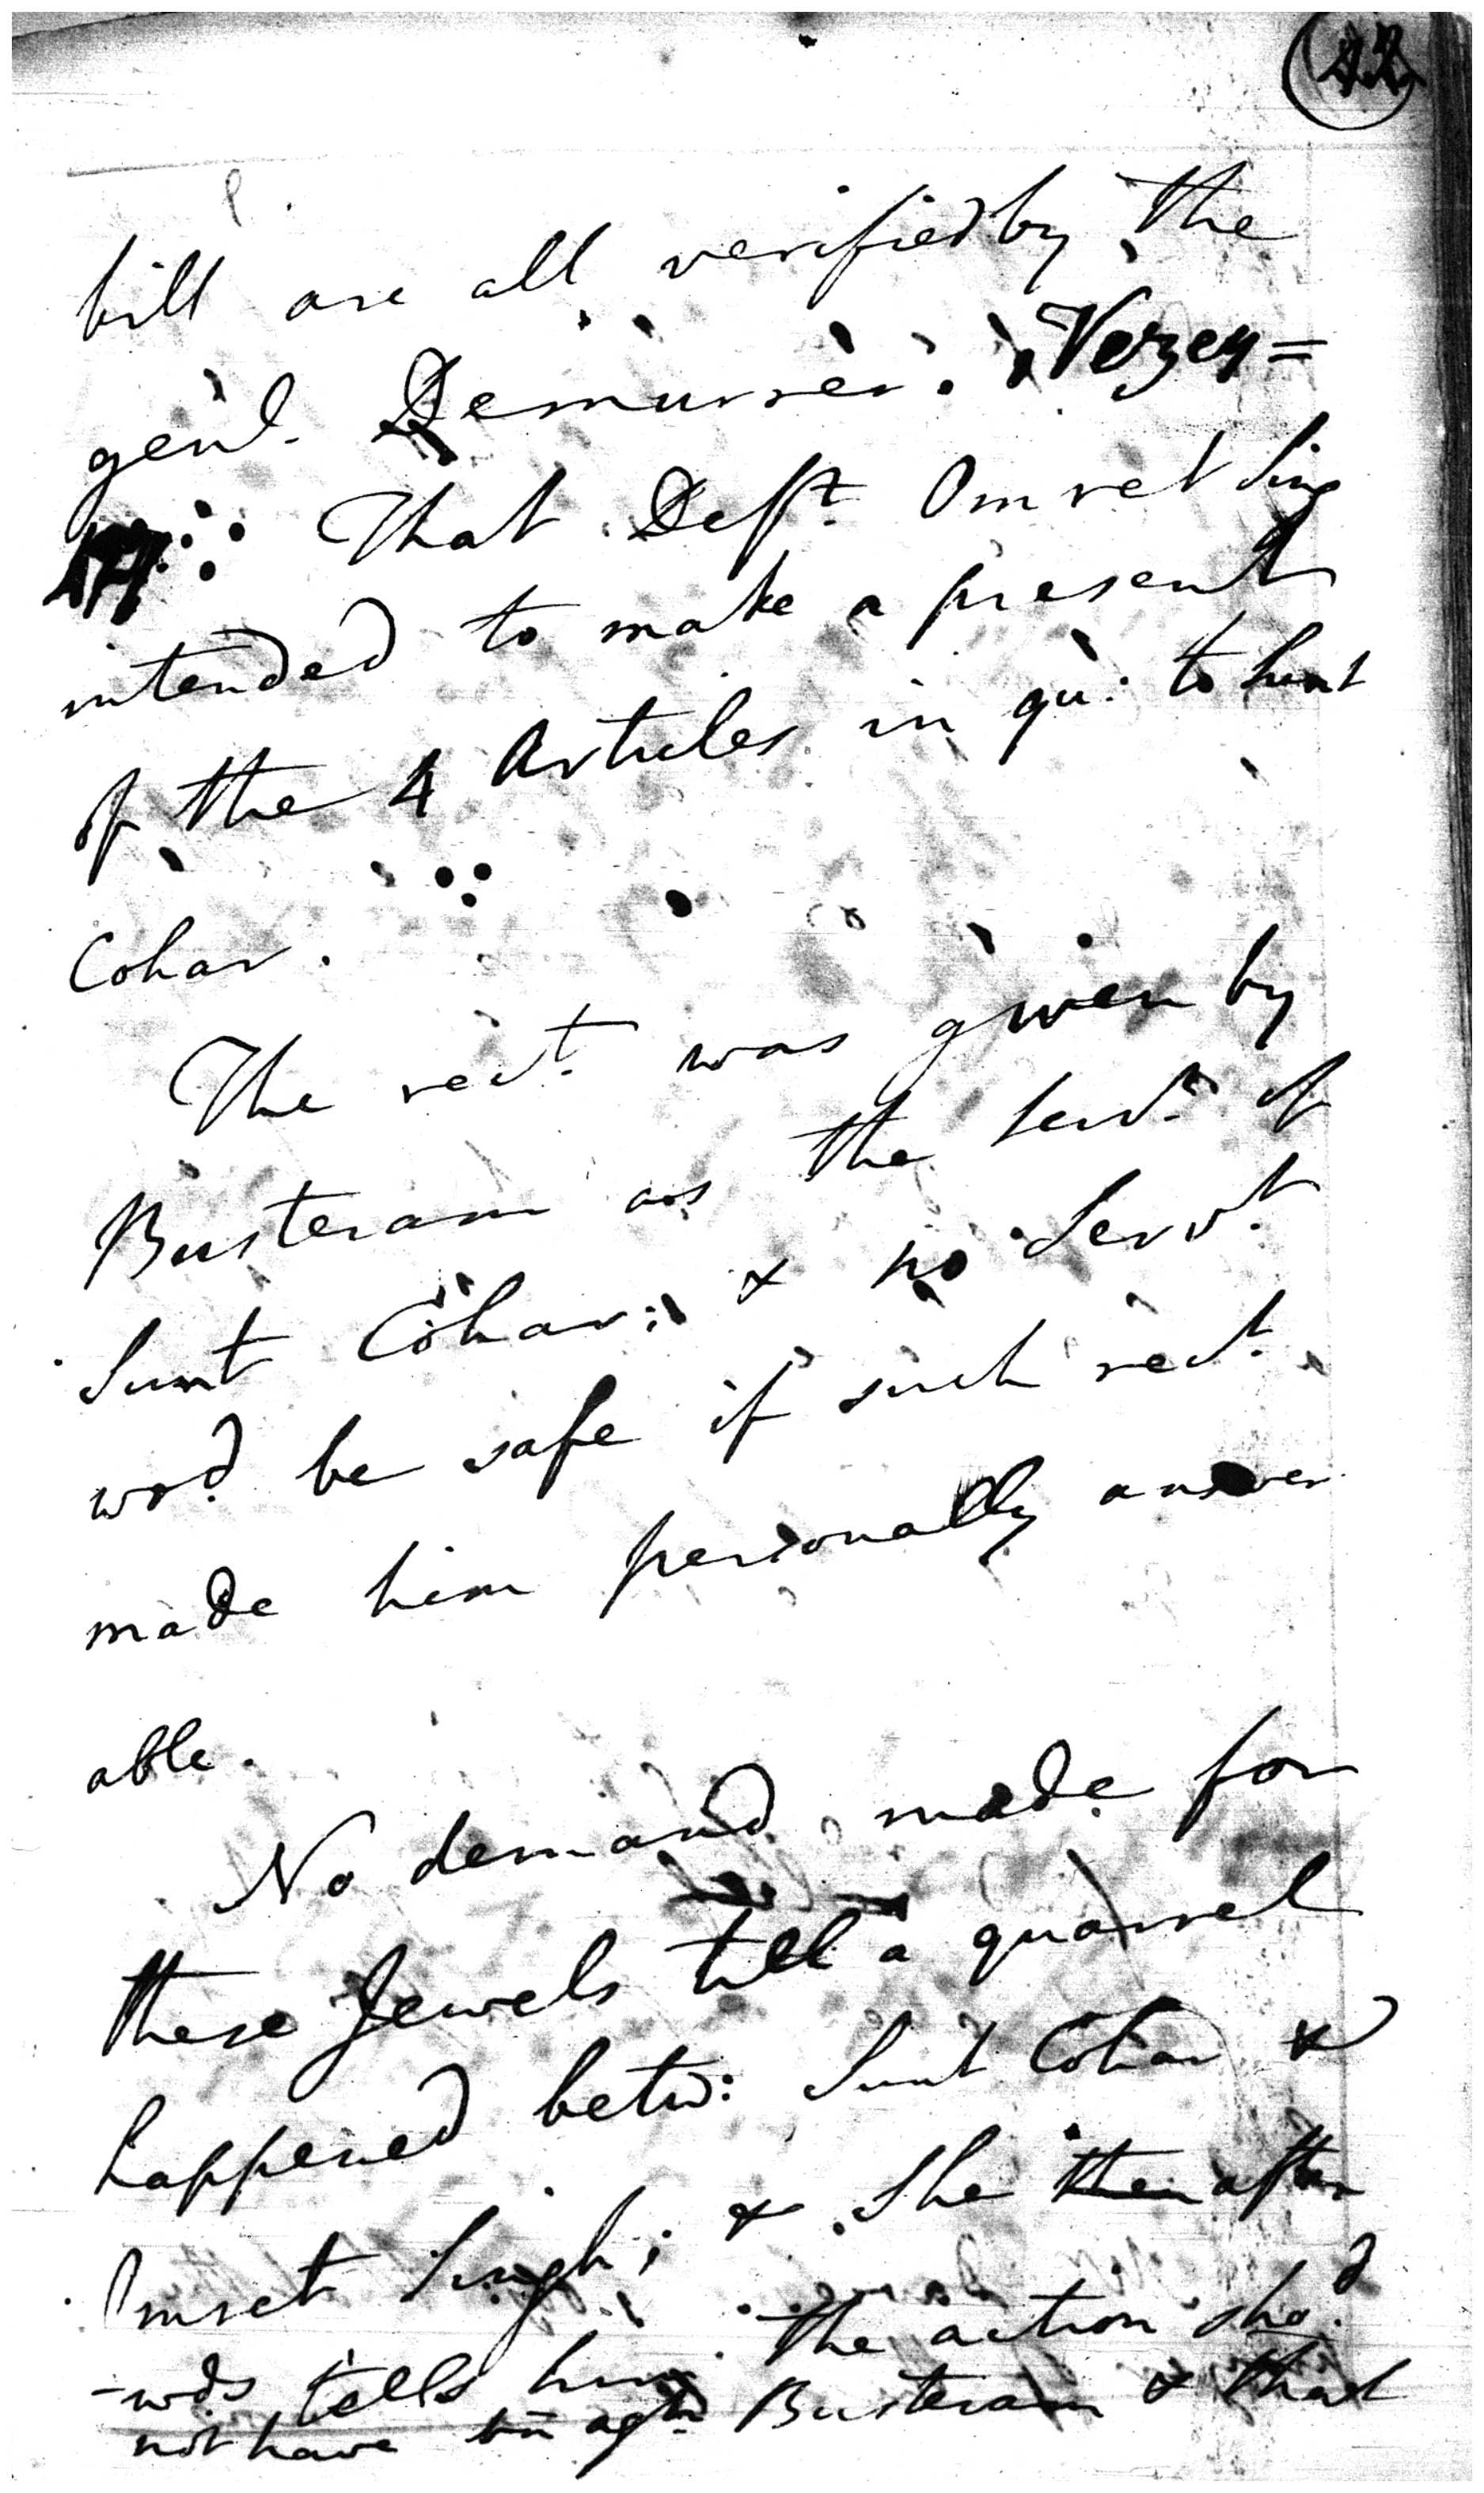 bill are all verified by the
genl. Demurrer. Vezey=
That Deft. Omret Sing
intended to make a present
of the 4 Articles in qu: to Sunt
Cohar.
The rect. was given by
Busteram as the servt. of
Sunt Cohar; & no Servt.
wod. be safe if such rect.
made him personally answer
able.
No demand made for
these Jewels till a quarrel
happened betw: Sunt Cohar &
Omret Singh; & she then after
-wds tells him. The action shod.
not have bn agt. Busteram & that